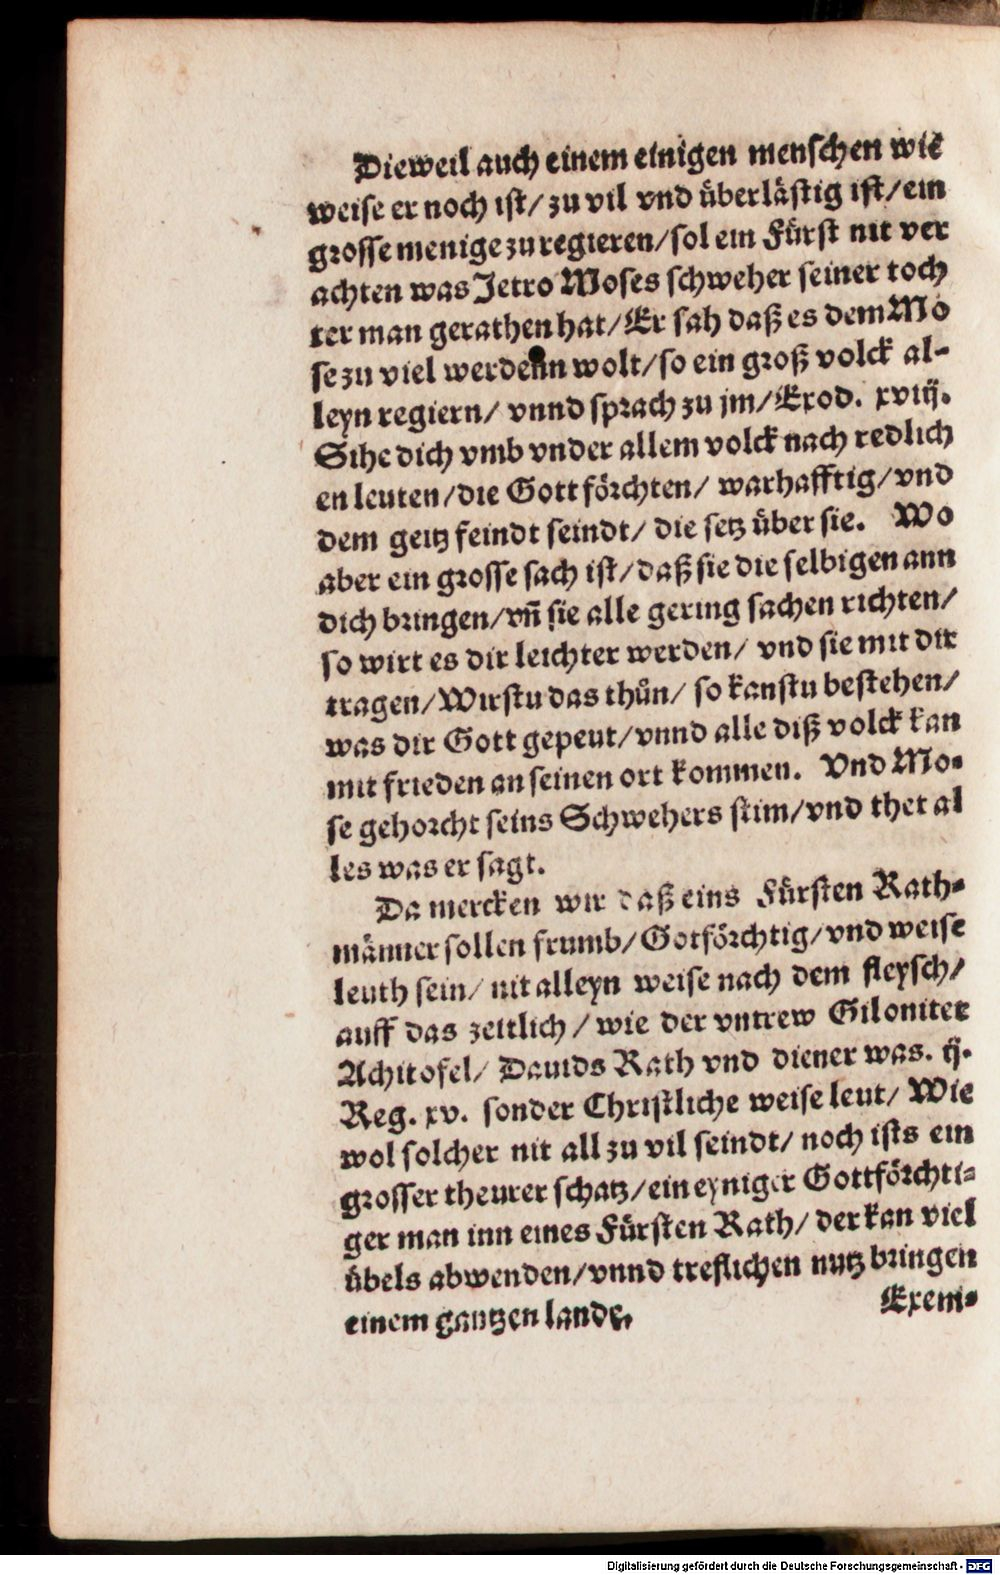 Dieweil auch einem einigen menschen wie
weise er noch ist/ zu vil vnd überlästig ist/ ein
grosse menige zu regieren/ sol ein Fürst nit ver
achten was Jetro Moses schweher seiner toch
ter man gerathen hat/ Er sah daß es dem Mo
se zu viel werdenn wolt/ so ein groß volck al-
leyn regiern/ vnnd sprach zu jm/ Exod. xviij.
Sihe dich vmb vnder allem volck nach redlich
en leuten/ die Gott förchten/ warhafftig/ vnd
dem geitz feindt seindt/ die setz über sie. Wo
aber ein grosse sach ist/ daß sie die selbigen ann
dich bringen/ vñ sie alle gering sachen richten/
so wirt es dir leichter werden/ vnd sie mit dir
tragen/ Wirstu das thůn/ so kanstu bestehen/
was dir Gott gepeut/ vnnd alle diß volck kan
mit frieden an seinen ort kommen. Vnd Mo-
se gehorcht seins Schwehers stim/ vnd thet al
les was er sagt.
Da mercken wir daß eins Fürsten Rath-
männer sollen frumb/ Gotförchtig/ vnd weise
leuth sein/ nit alleyn weise nach dem fleysch/
auff das zeitlich/ wie der vntrew Giloniter
Achitofel/ Dauids Rath vnd diener was. ij.
Reg. xv. sonder Christliche weise leut/ Wie
wol solcher nit all zu vil seindt/ noch ists ein
grosser theurer schatz/ ein eyniger Gottförchti-
ger man inn eines Fürsten Rath/ der kan viel
übels abwenden/ vnnd treflichen nutz bringen
einem gantzen lande.
Exem-
Digitalisierung gefördert durch die Deutsche Forschungsgemeinschaft - DFG